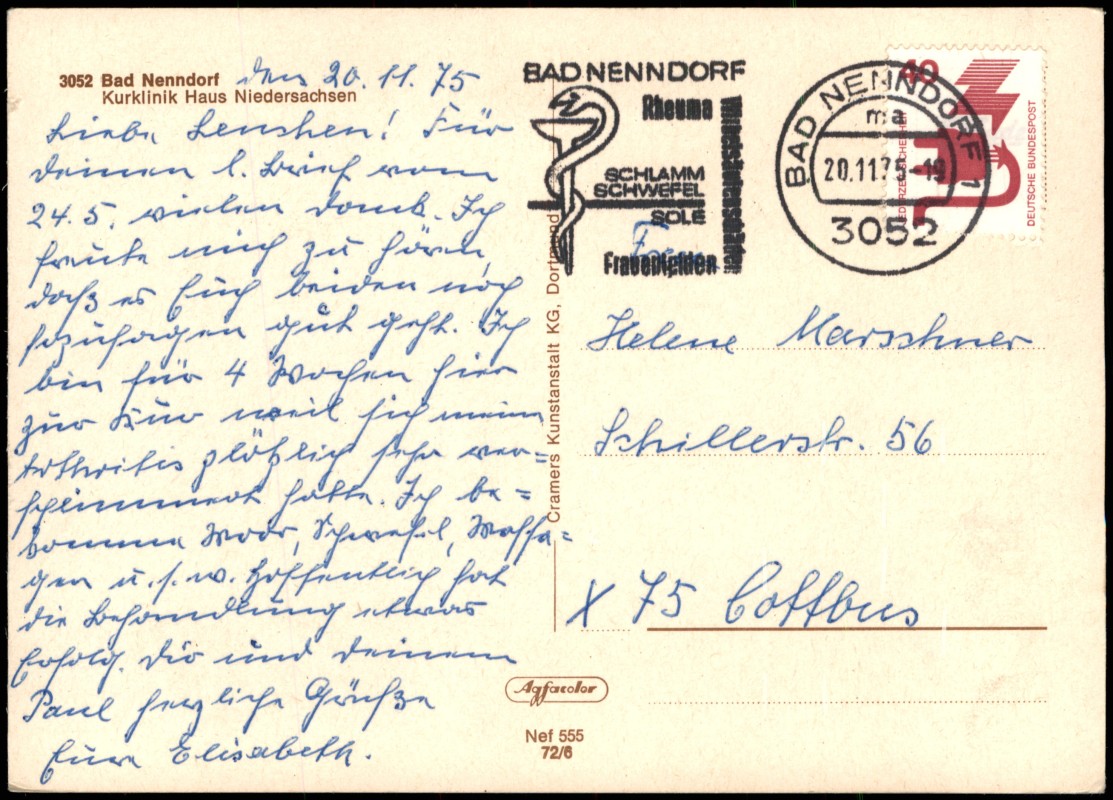 3052 Bad Nenndorf
Kurklinik Haus Niedersachsen
den 20.11.75
Liebe Lenchen! Für
deinen l. Brief vom
24.5. vielen Dank. Ich
freute mich zu hören,
daß es Euch beiden noch
sozusagen gut geht. Ich
bin für 4 Wochen hier
zur Kur weil sich meine
Arthritis plötzlich sehr ver=
schlimmert hatte. Ich be=
komme Moor, Schwefel, Massa=
gen u.s.w. Hoffentlich hat
die Behandlung etwas
Erfolg. Dir und deinem
Paul herzliche Grüße
Eure Elisabeth.
Cramers Kunstanstalt KG, Dortmund
Agfacolor
Nef 555
72/6
BAD NENNDORF
Rheuma
Wirbelsäulenschäden
SCHLAMM
SCHWEFEL
SOLE
Frauenleiden
BAD NENNDORF 1
ma
20.11.75-19
3052
40
JEDERZEIT SICHERHEIT
DEUTSCHE BUNDESPOST
Helene Marschner
Schillerstr. 56
X 75 Cottbus